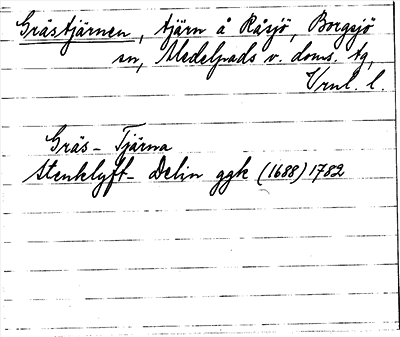 Grästjärnen, tjärn å Råsjö, Borgsjö
sn, Medelpads v. doms. tg,
Vrnl. l.
Gräs-Tjärna
Stenklyft- Delin ggk (1688) 1782